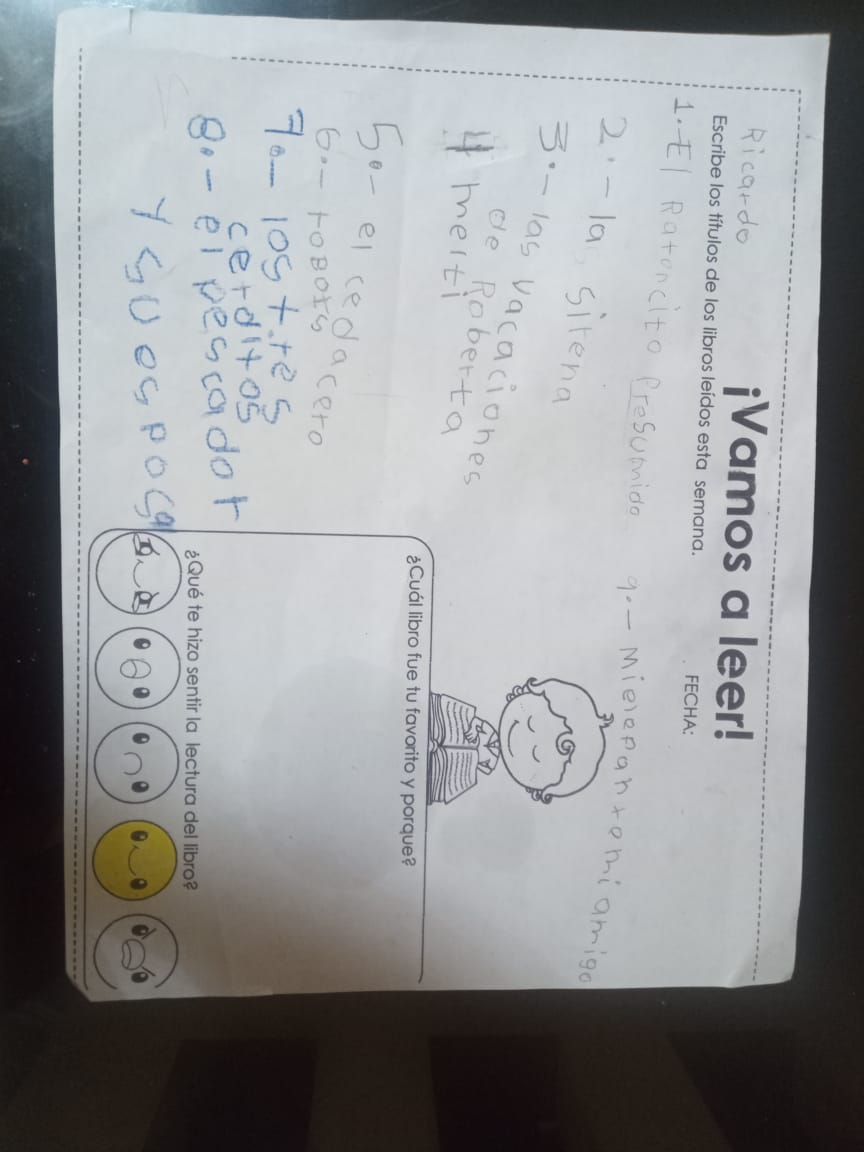 Ricardo
¡Vamos a leer!
Escribe los títulos de los libros leídos esta semana.
FECHA:
1.-El Ratoncito Presumido
2.- la sirena
3.- las vacaciones
de Roberta
4 merti
5.- el cedacero
6.- roBots
7.- los tres
cerditos
8.- el pescador
y su esposa
9.- Mielepantemiamigo
¿Cuál libro fue tu favorito y porque?
¿Qué te hizo sentir la lectura del libro?